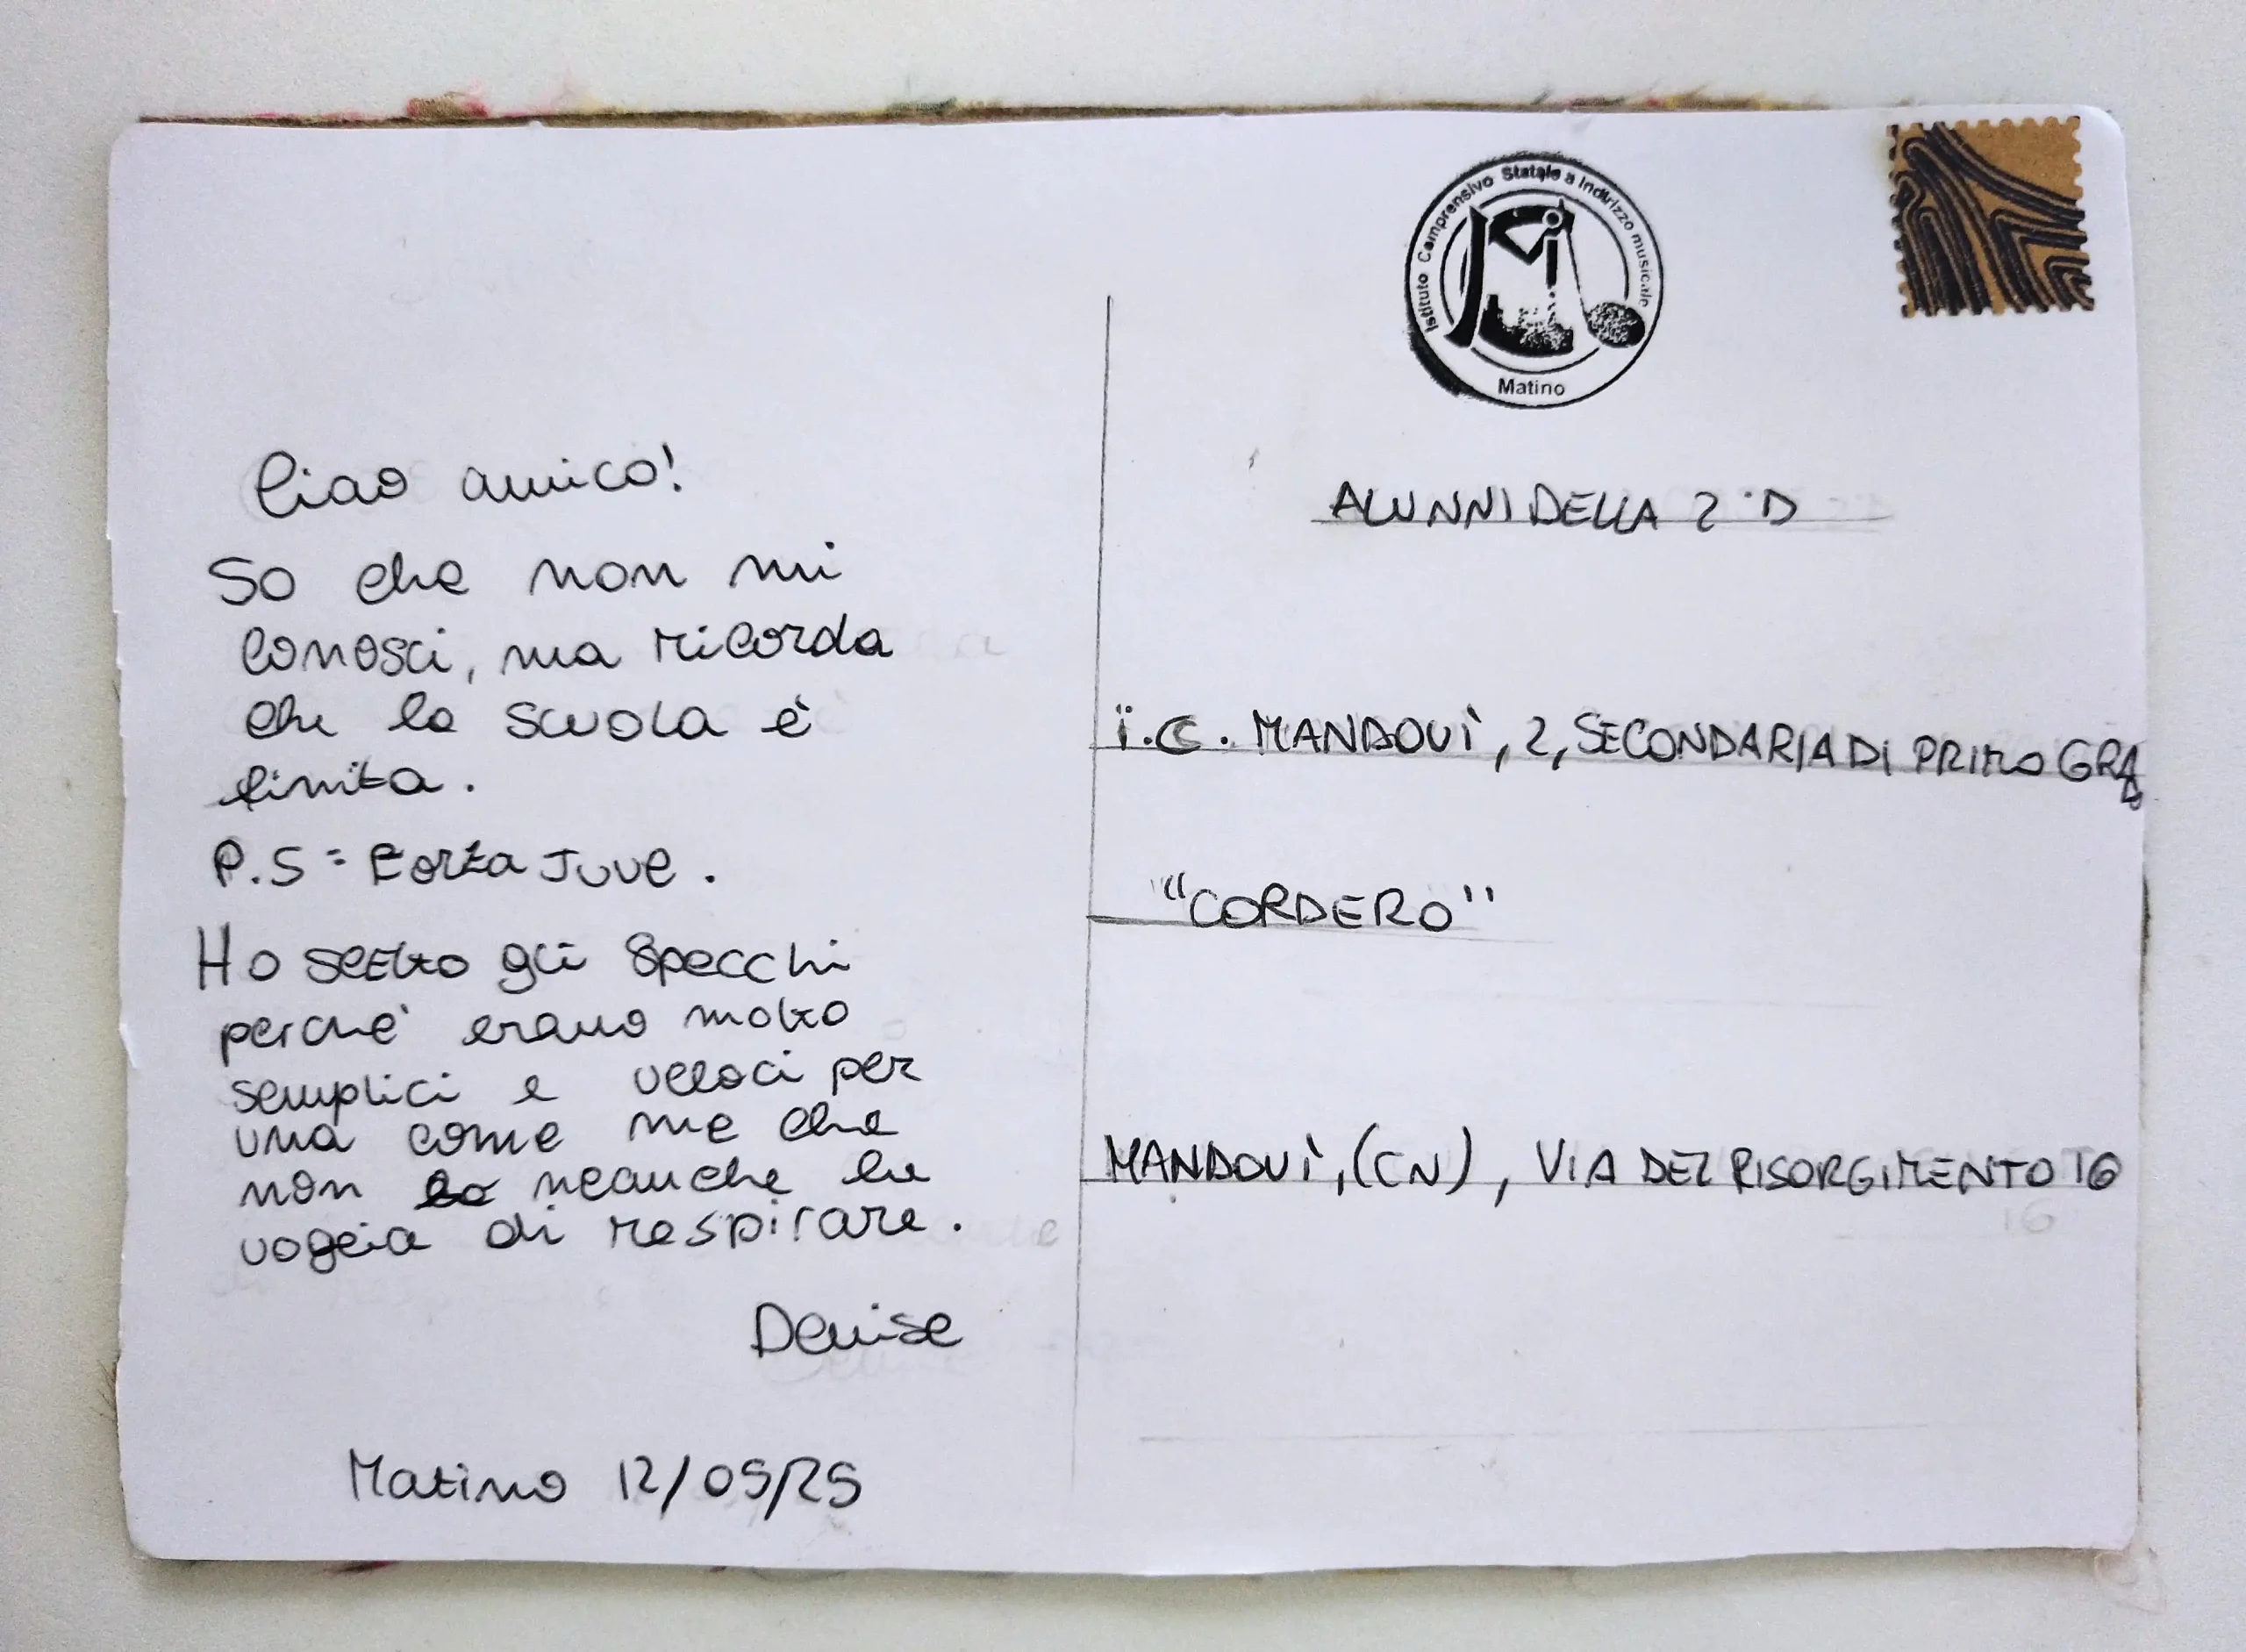 Ciao amico!
So che non mi
conosci, ma ricorda
che la scuola è
finita.
P.S = Forza Juve.
Ho scelto gli specchi
perchè erano molto
semplici e veloci per
una come me che
non ha neanche la
voglia di respirare.
Denise
Matino 12/05/25
Istituto Comprensivo Statale a Indirizzo musicale
Matino
ALUNNI DELLA 2°D
I.C. MANDOVÌ, 2, SECONDARIA DI PRIMO GRADO
"CORDERO"
MANDOVÌ, (CN), VIA DEL RISORGIMENTO 16
16